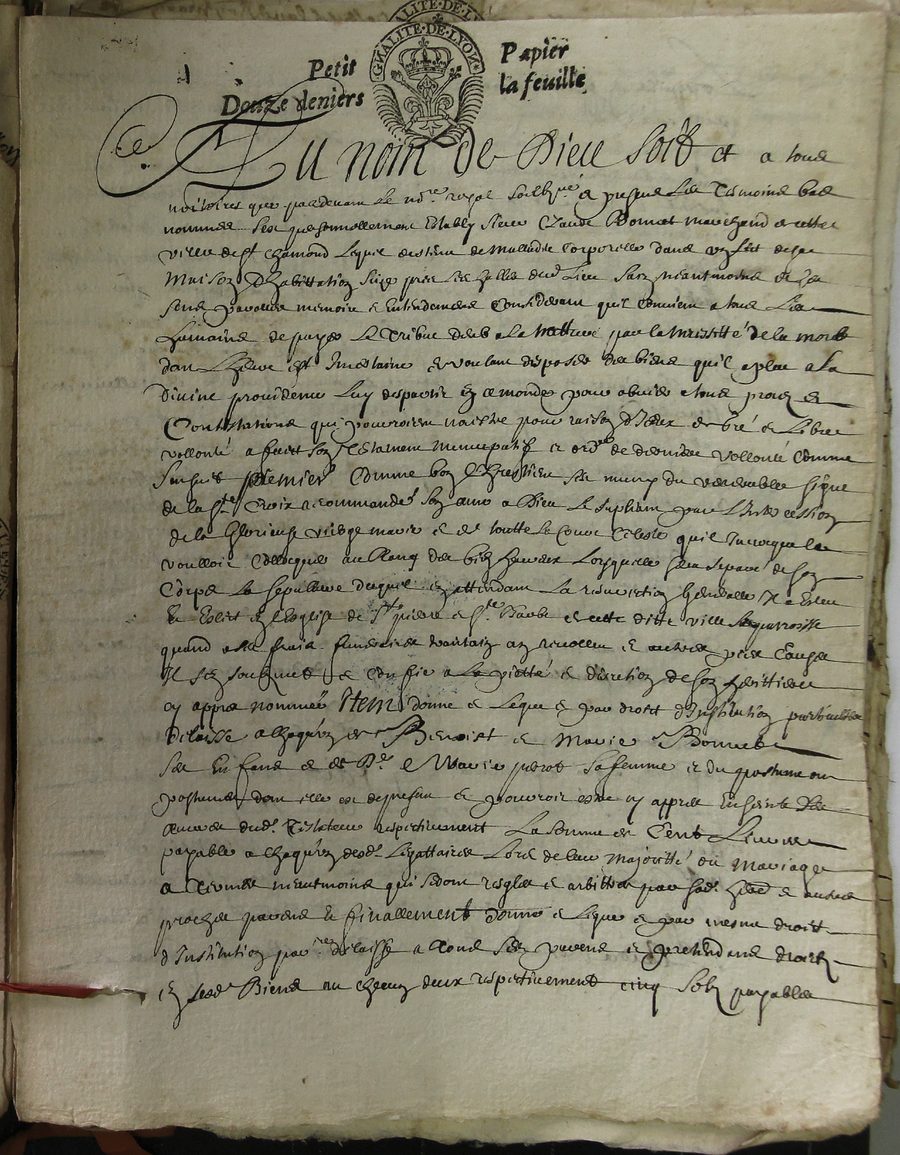 GNALITE·DE·LYON
Petit Papier
Douze deniers la feuille
Au nom de Dieu soit et a tous
notoires que pardevant le no.re royal soubz.né & presens les tesmoins bas
nommes s'est personnellement estably sieur Claude Bonnet marchand de cette
ville de st chamond lequel destenu de malladie corporelle dans un lict de sa
maison d'habittation size pres les halles dud lieu sain neantmoins de ses
sens parolle memoire & entendement considerant qu'il convient a tous les
humains de payer le tribut deub a la nature par la necessitté de la mort
dont l'heure est incertaine & voulant disposer des biens qu'il a pleu a la
divine providence luy despartir en ce monde pour obvier a tous proces &
contestations qui pourroient naistre pour raison d'iceux de gré & libre
vollonté a faict son testament nuncupatif et ord.ce de derniere vollonté comme
s'ensuit premier comme bon chrestien s'est muny du venerable signe
de la s.te Croix recommandé son ame a Dieu le suppliant par l'intercession
de la glorieuse vierge marie & de toutte la Cour Celeste qu'il invoque la
voulloir colloquer au rang des bien heureux lorsquelle sera separé de son
corps la sepulture duquel en attendant la resurrection generalle il a esleu
en l'Eglise de St pierre & ste Barbe de cette ditte ville sa parroisse
quand a la fraix funeraires
il s'en soubzmet & confie a la pietté & discretion de son herittiere
cy apres nommée Item donne & legue & par droit d'institution particuliere
delaisse a chaqu'un de Benoist & Marie Bonnet
ses enfans & de D.e Marie perot sa femme et du postume ou
postumes dont elle est de presant & pourroit estre cy apres enceinte des
œuvres dud. testateur respectivement la somme de Cent Livres
payable a chaqu'un desd. legattaires lors de leur majoritté ou mariage
a termes neantmoins qui seront reglés & arbittrés par sad. herd. & autres
proches parens & finallement donne & legue & par mesme droit
d'institution par.re delaisse a tous ses parens & pretendans droits
en sesd. Biens au chacun deux respectivement cinq solz payables